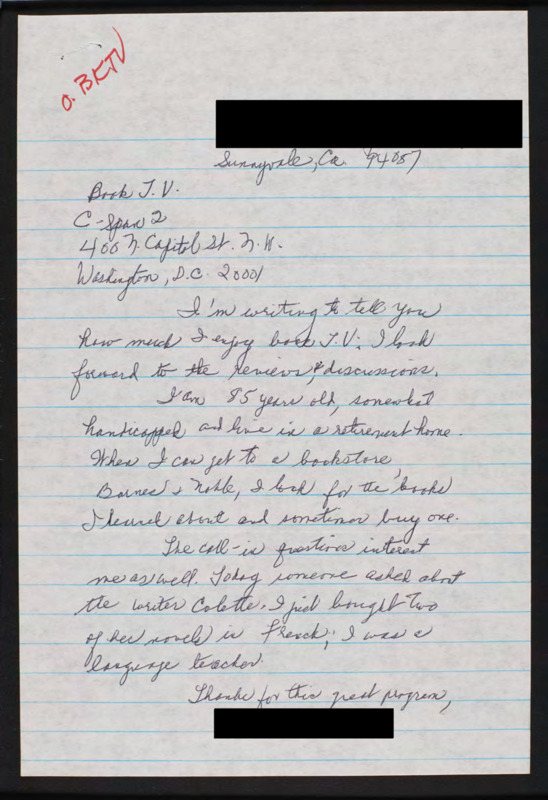 O. BKTV
Sunnyvale, Ca. 94087
Book T.V.
C-Span 2
400 N. Capitol St. N.W.
Washington, D.C. 20001
I'm writing to tell you
how much I enjoy book T.V. I look
forward to the reviews, & discussions.
I am 85 years old, somewhat
handicapped and live in a retirement home.
When I can get to a bookstore,
Barnes & Noble, I look for the books
I heard about and sometimes buy one.
The call-in questions interest
me as well. Today someone asked about
the writer Colette. I just bought two
of her novels in French; I was a
language teacher.
Thanks for this great program,